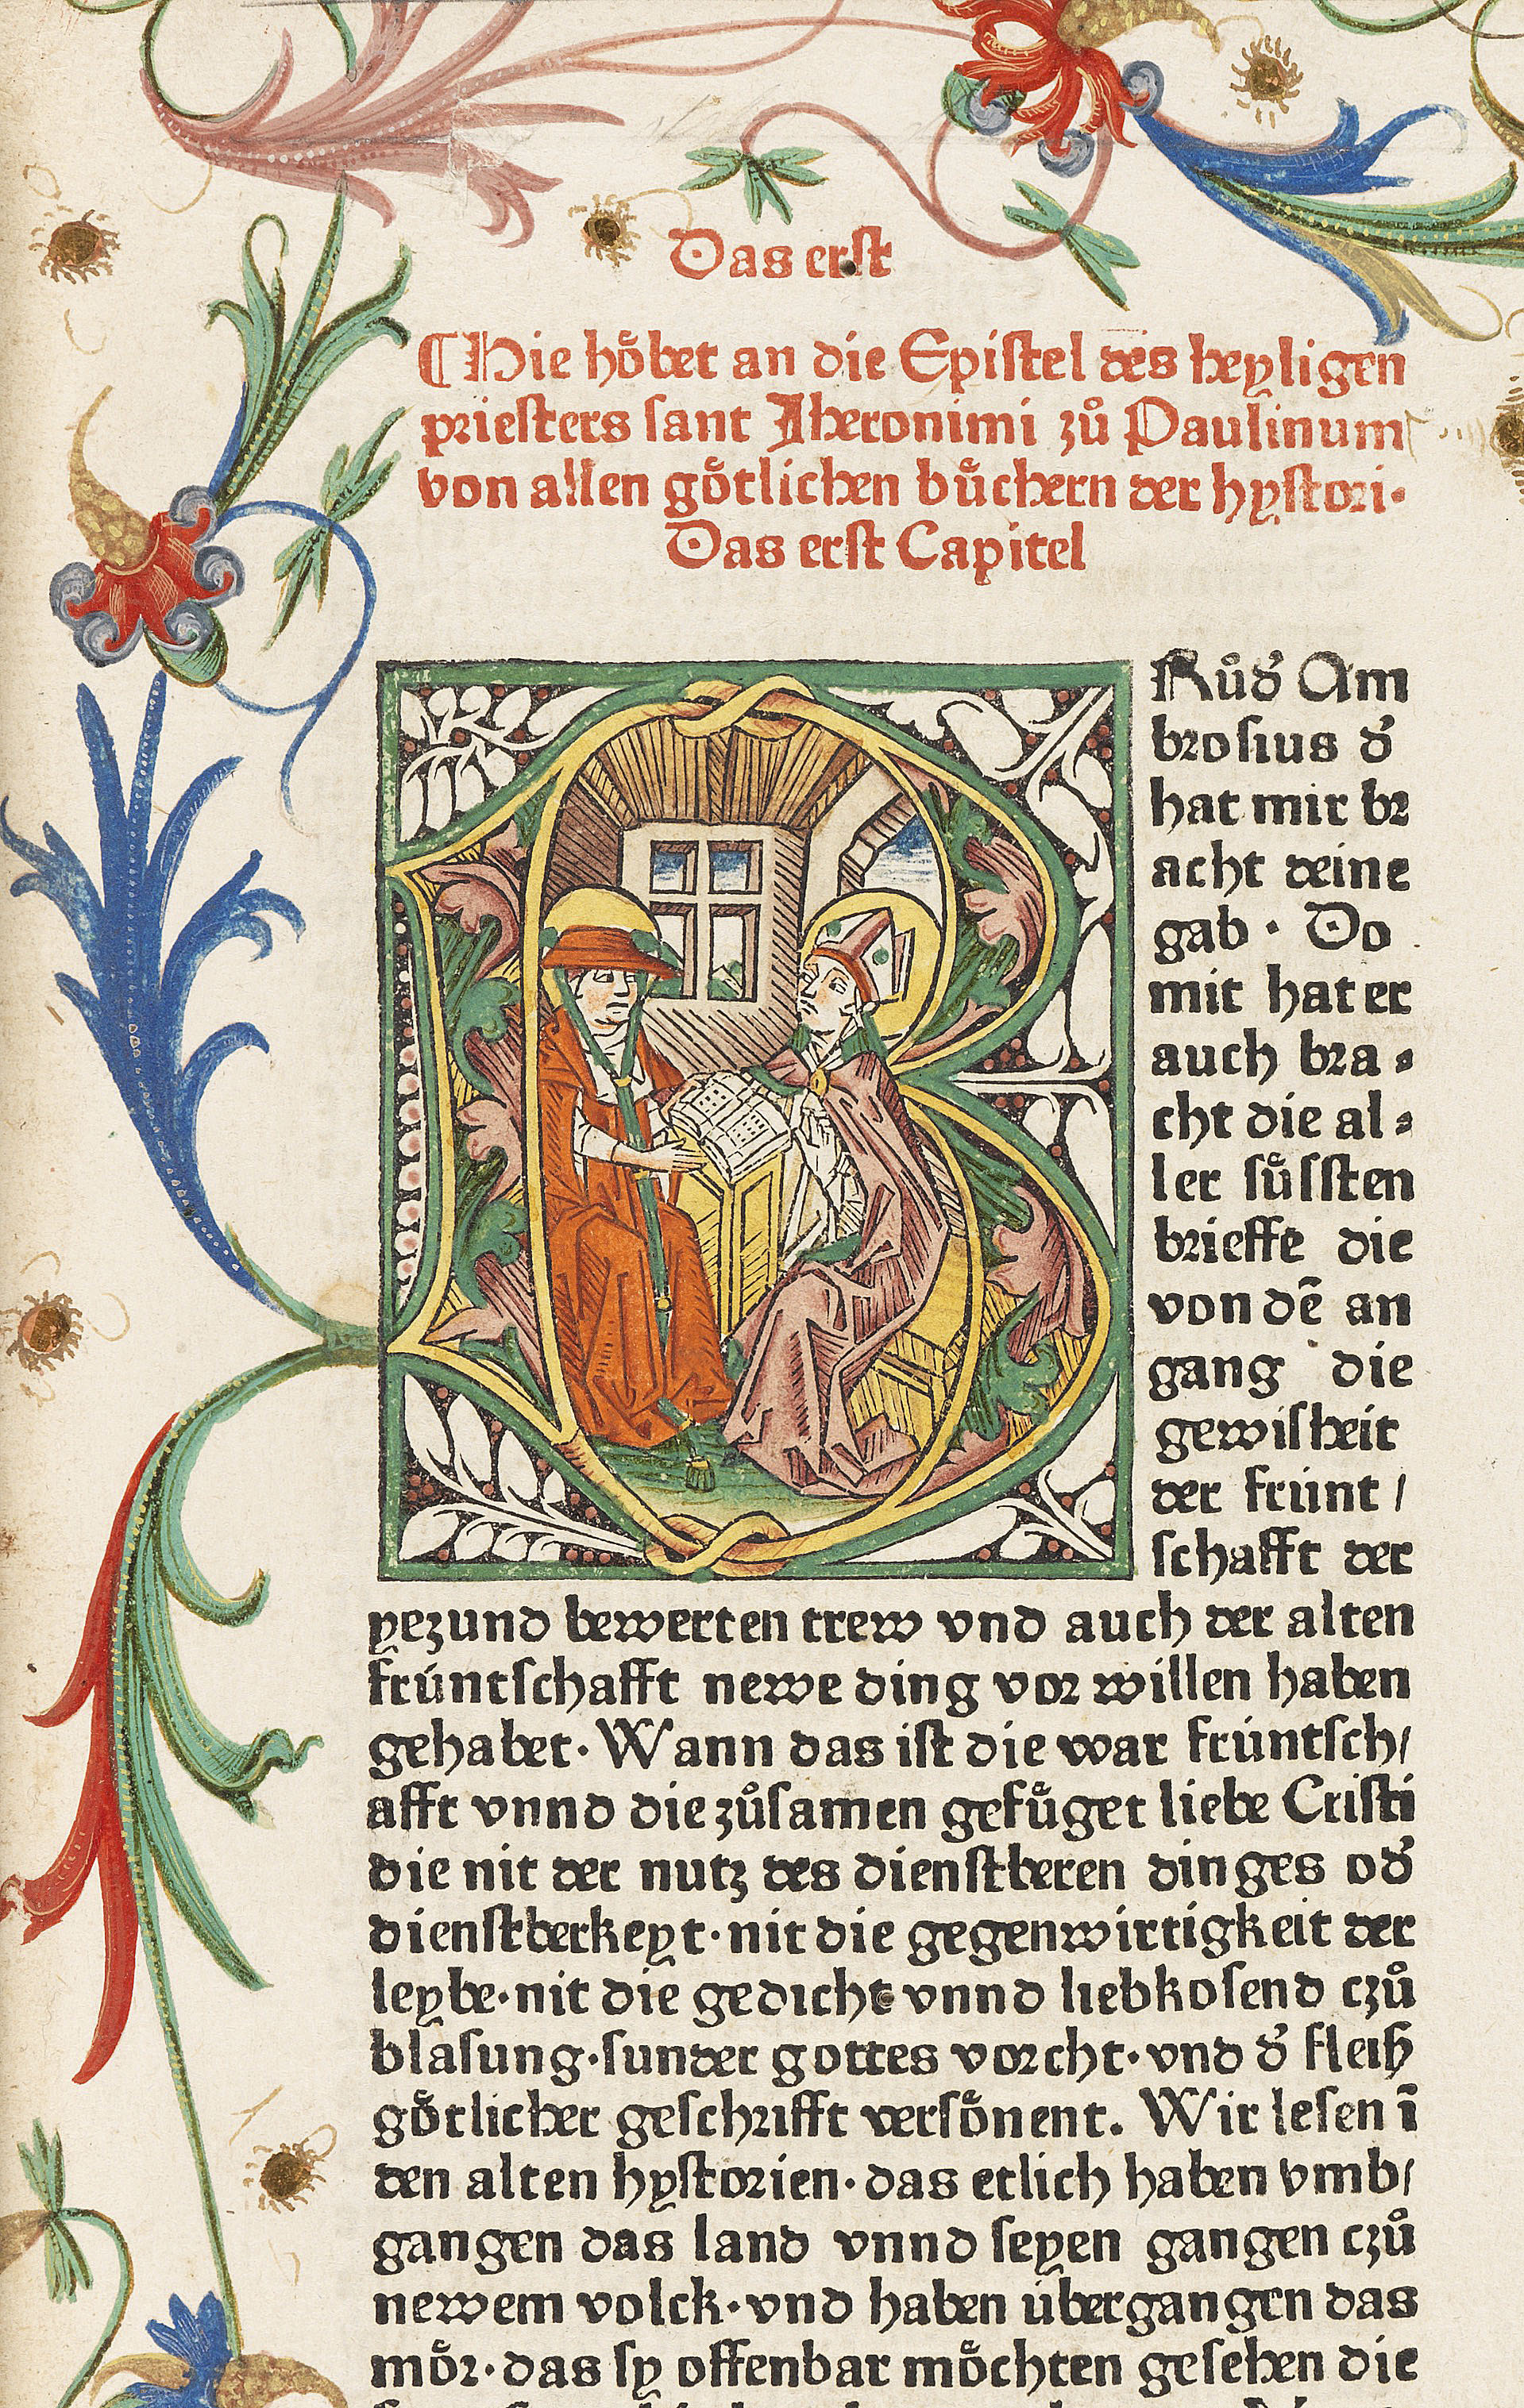 Das erst
¶Hie hoͤbet an die Epistel des heyligen
priesters sant Jheronimi zuͦ Paulinum
von allen goͤtlichen buͤchern der hystori·
Das erst Capitel
BRuͦd᷑ Am
brosius d᷑
hat mir br
acht deine
gab · Do
mit hat er
auch bra⸗
cht die al⸗
ler suͤssten
brieffe die
von dē an
gang die
gewisheit
der frúnt/
schafft der
yezund bewerten trew vnd auch der alten
frúntschafft newe ding vor willen haben
gehabet· Wann das ist die war frúntsch/
afft vnnd die zuͦsamen gefuͤget liebe Cristi
die nit der nutz des dienstberen dinges od᷑
dienstberkeyt·nit die gegenwirtigkeit der
leybe·nit die gedicht vnnd liebkosend czuͦ
blasung·sunder gottes vorcht·vnd d᷑ fleiß
goͤtlicher geschrifft versoͤnent. Wir lesen ī
den alten hystorien·das etlich haben vmb/
gangen das land vnnd seyen gangen czuͦ
newem volck·vnd haben úbergangen das
moͤr·das sy offenbar moͤchten gesehen die